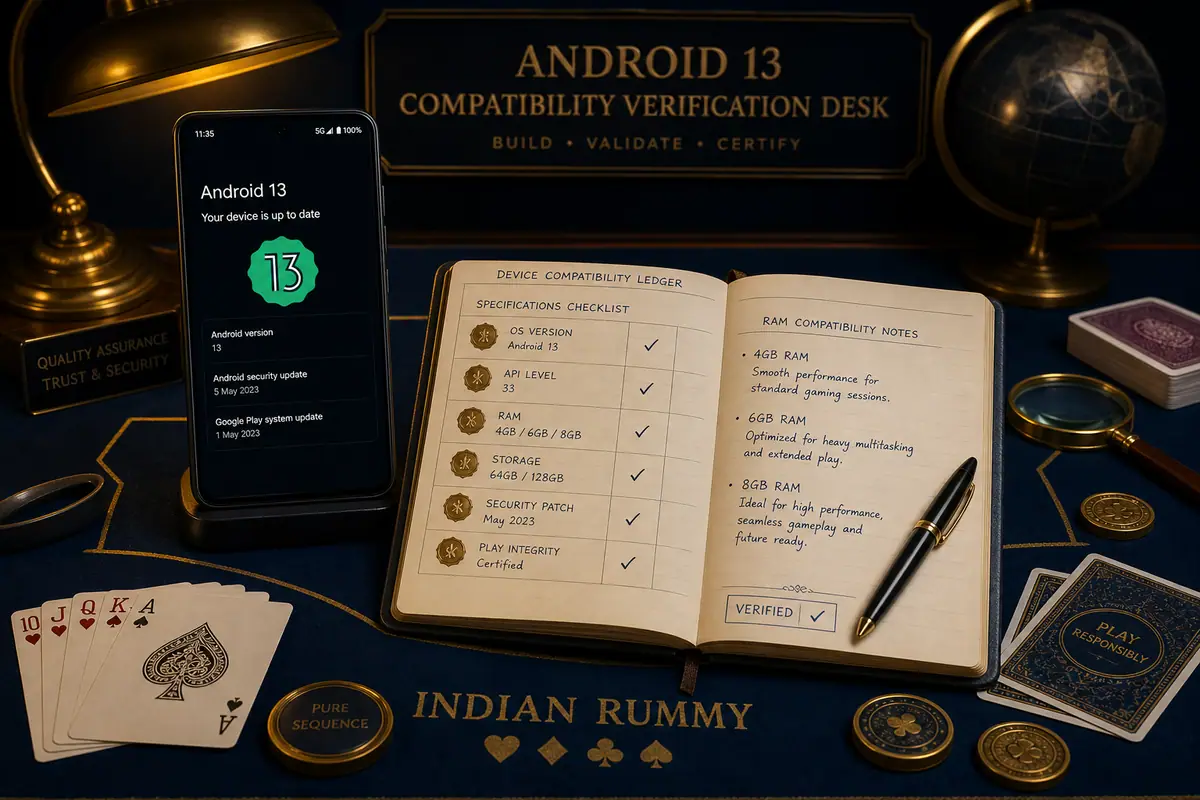 ANDROID 13
COMPATIBILITY VERIFICATION DESK
BUILD • VALIDATE • CERTIFY
11:35
5G
100%
Android 13
Your device is up to date
13
Android version
13
Android security update
5 May 2023
Google Play system update
1 May 2023
QUALITY ASSURANCE
TRUST & SECURITY
DEVICE COMPATIBILITY LEDGER
SPECIFICATIONS CHECKLIST
OS VERSION
Android 13
API LEVEL
33
RAM
4GB / 6GB / 8GB
STORAGE
64GB / 128GB
SECURITY PATCH
May 2023
PLAY INTEGRITY
Certified
RAM COMPATIBILITY NOTES
• 4GB RAM
Smooth performance for
standard gaming sessions.
• 6GB RAM
Optimized for heavy multitasking
and extended play.
• 8GB RAM
Ideal for high performance,
seamless gameplay and
future ready.
VERIFIED ✓
10 J Q K A
A
PURE
SEQUENCE
INDIAN RUMMY
PLAY
RESPONSIBLY